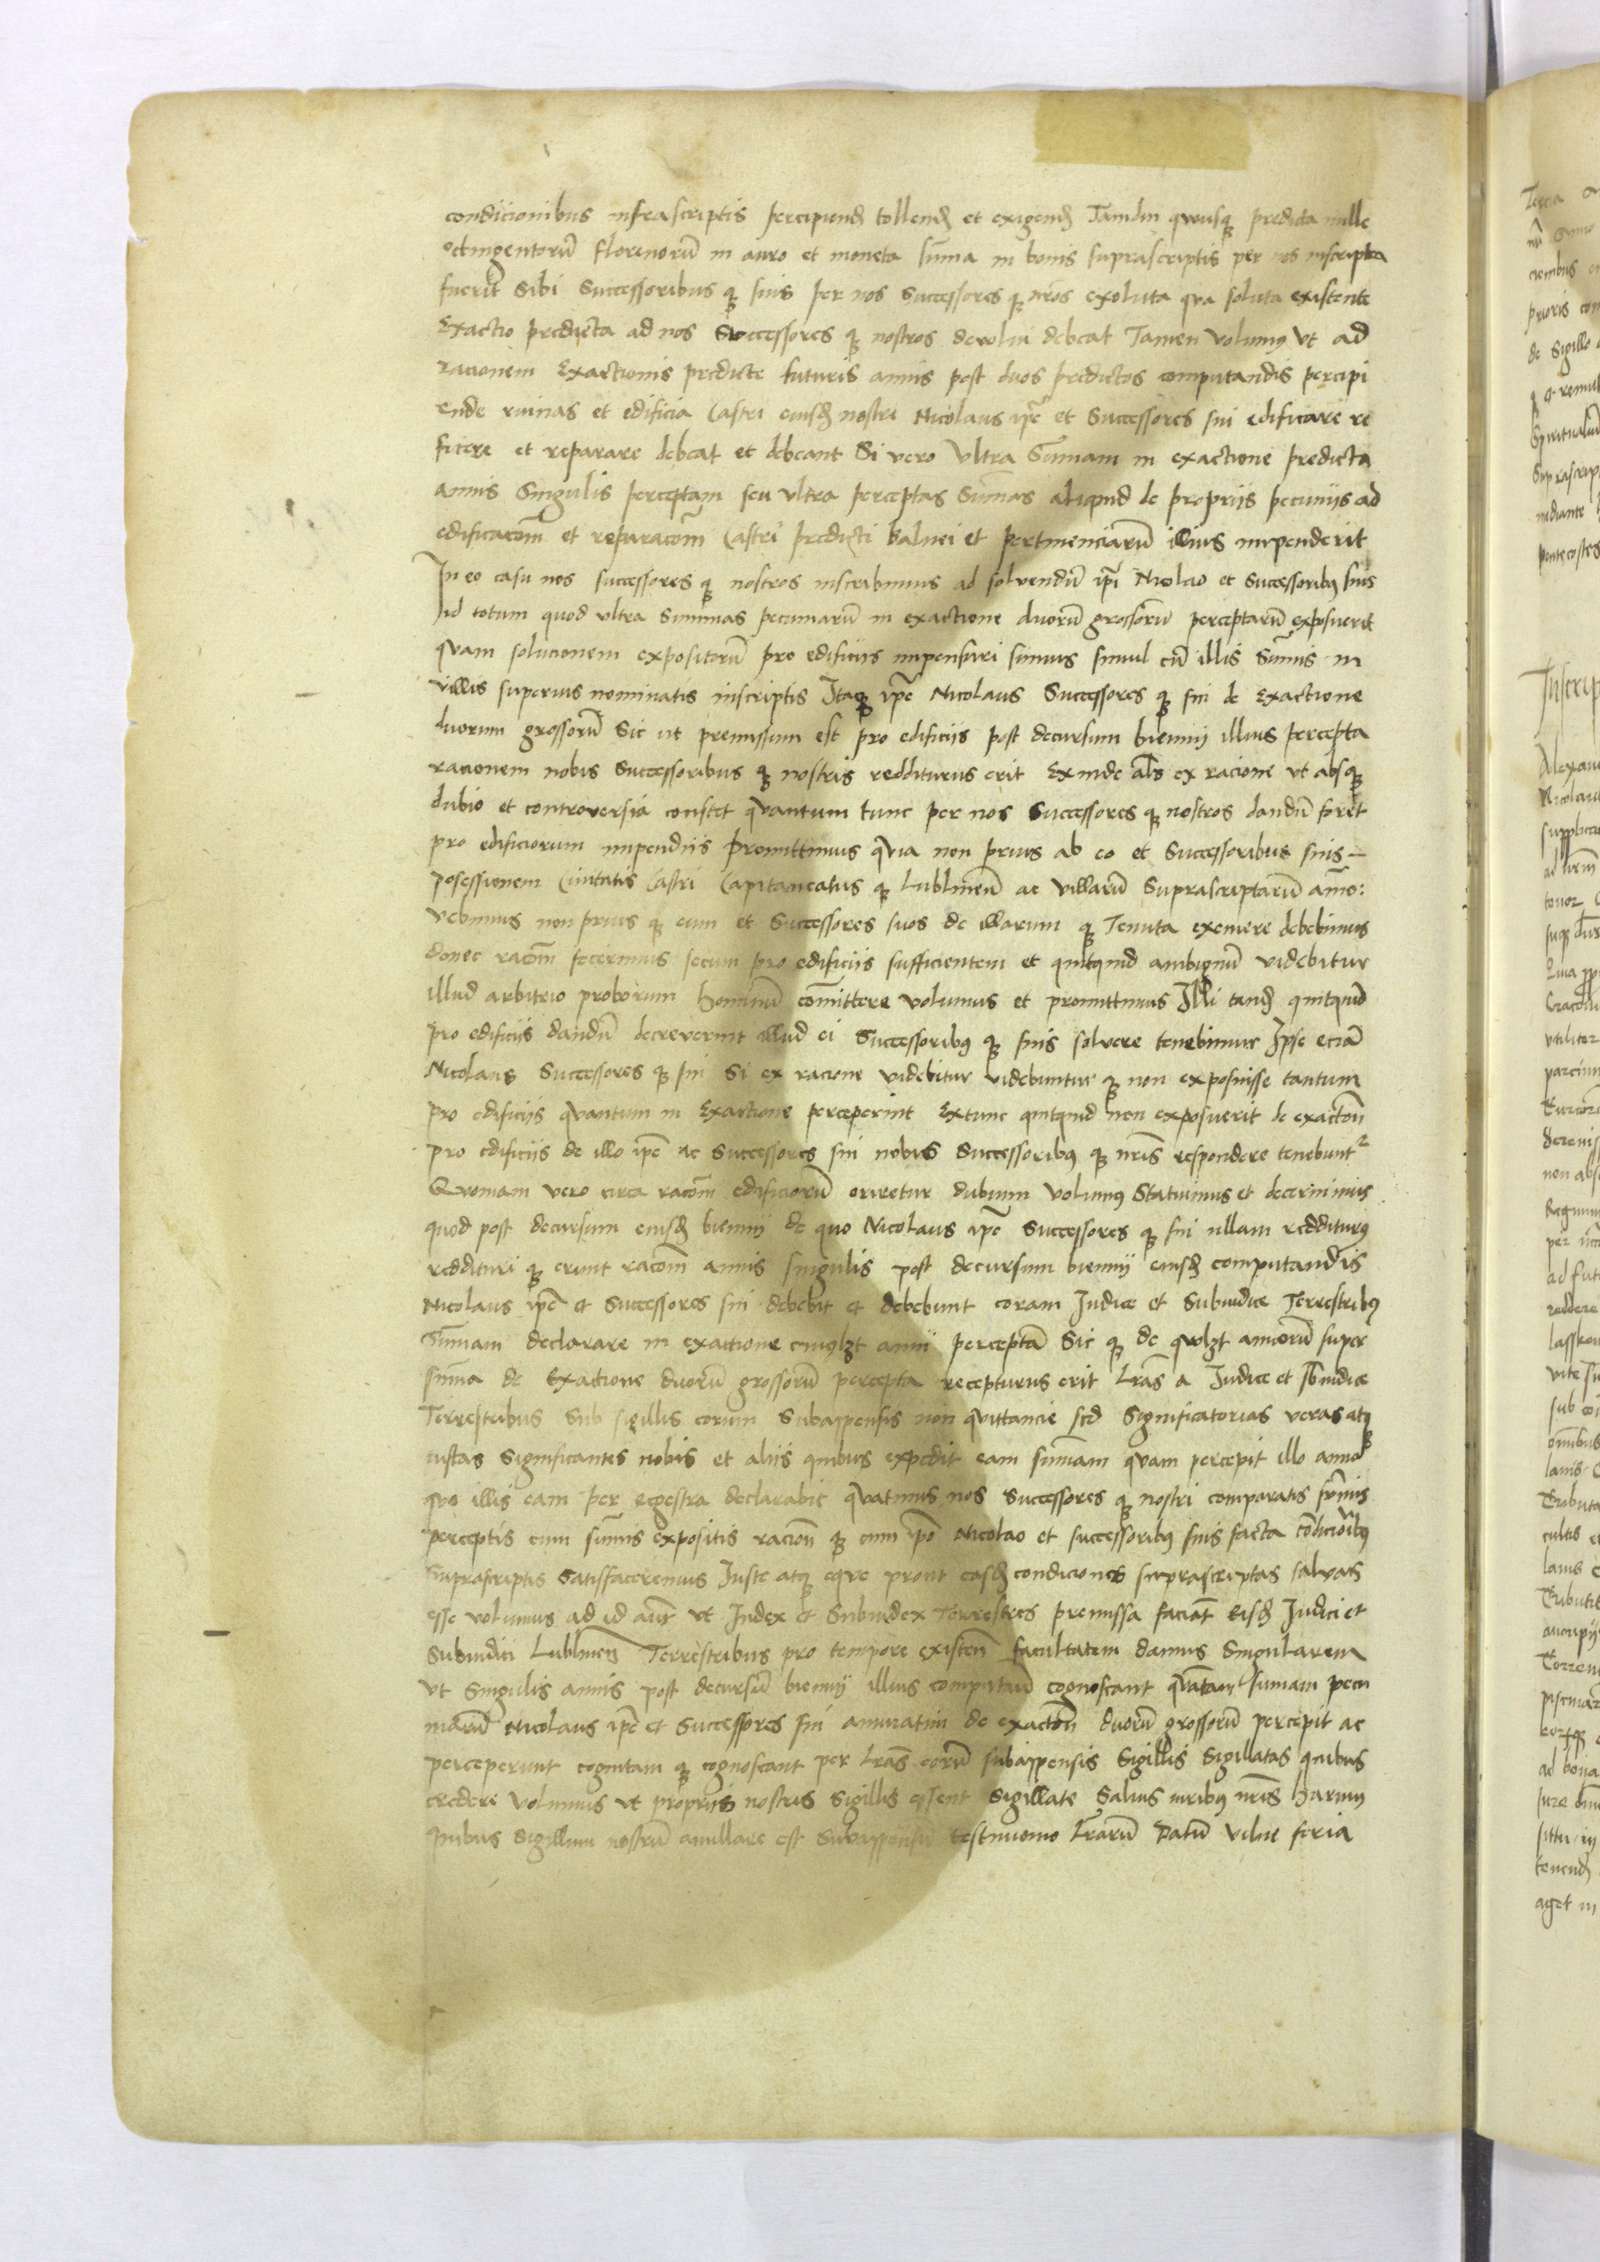 condicionibus infrascriptis percipiend tollend et exigend Tamdiu quousq predicta mille
octingentorū florenorū in auro et moneta sūma in bonis suprascriptis per nos inscripta
fuerit sibi Successoribus q suis per nos Successores q nros exoluta qua soluta existente
Exactio predicta ad nos Successores q nostros devolui debeat Tamen volumus vt ad
racionem Exactionis predicte futuris annis post duos predictos computandis percipi
ende ruinas et edificia Castri eiusd nostri Nicolaus ipe et Successores sui edificare re
ficere et reparare debeat et debeant Si vero vltra Sūmam in exactione predicta
annis Singulis perceptam seu vltra perceptas Sūmas aliquid de propriis pecuniis ad
edificacōm et reparacōm Castri predicti balnei et pertinenciarū illius impenderit
In eo casu nos successores q nostros inscribimus ad solvendū ipi Nicolao et Successoribus suis
id totum quod vltra Summas pecuniarū in exactione duorū grossorū perceptarū exposuerit
quam solucionem expositorū pro edificiis impensuri sumus simul cū illis Sūmis in
villis superius nominatis inscriptis Itaq ipe Nicolaus Successores q sui de Exactione
duorum grossorū Sic vt premissum est pro edificiis post decursum biennij illius percepta
racionem nobis Successoribus q nostris redditurus erit Exinde als ex racione vt absq
dubio et controversia constet quantum tunc per nos Successores q nostros dandū foret
pro edificiorum impendiis Promittimus quia non prius ab eo et Successoribus suis
possessionem Civitatis Castri Capitaneatus q Lublinen ac villarū Suprascriptarū amo:
vebimus non prius q eum et Successores suos de illarum q Tenuta eximere debebimus
donec racōm fecerimus secum pro edificiis sufficientem et quitquid ambiguū videbitur
illud arbitrio proborum hominū comittere volumus et promittimus Illi tand quitquid
pro edificiis dandū decreverint illud ei Successoribus q suis solvere tenebimur Ipse eciā
Nicolaus Successores q sui Si ex racione videbitur videbuntur q non exposuisse tantum
pro edificiis quantum in Exactione perceperint Extunc quitquid non exposuerit de exactōn
pro edificiis de illo ipe ac Successores sui nobis Successoribus q nris respondere tenebunt
Quoniam vero circa racōm edificiorū oriretur dubium volumus Statuimus et decernimus
quod post decursum eiusd biennij de quo Nicolaus ipe Successores q sui nullam redditurus
reddituri q erunt racōm annis singulis post decursum biennij eiusd computandis
Nicolaus ipe et Successores sui debebit et debebunt coram Iudice et Subiudice Terrestribus
Sūmam declarare in exactione cuiuslzt anni perceptā Sic q de quolzt annorū super
sūma de Exactione duorū grossorū percepta recepturus erit Lras a Iudice et Sbiudice
Terrestribus Sub sigillis eorum Subappensis non quittancie sed Significatorias veras atq
iustas Significantes nobis et aliis quibus expedit eam sūmam quam percepit illo anno
quo illis eam per regestra declarabit quatinus nos Successores q nostri comparatis sūmis
perceptis cum sūmis expositis racion q cum ipo Nicolao et successoribus suis facta condicionibus
Suprascriptis Satisfaceremus Iuste atq eque prout easd condiciones suprascriptas salvas
esse volumus ad id aut vt Iudex et Subiudex Terrestres premissa faciāt eisd Iudici et
Subiudici Lublinen Terrestribus pro tempore existen facultatem damus Singularem
vt Singulis annis post decursū biennij illius computan cognoscant quātam sumam pecu
niarū Nicolaus ipe et Successores sui annuatim de exactōn duorū grossorū percepit ac
perceperunt cognitam q cognoscant per Lras eorū subappensis Sigillis Sigillatas quibus
credere volumus vt propriis nostris Sigillis essent Sigillate Salvis iuribus nris harum
quibus Sigillum nostrū anullare est Subappensū testimonio Lrarū Datū vilne feria